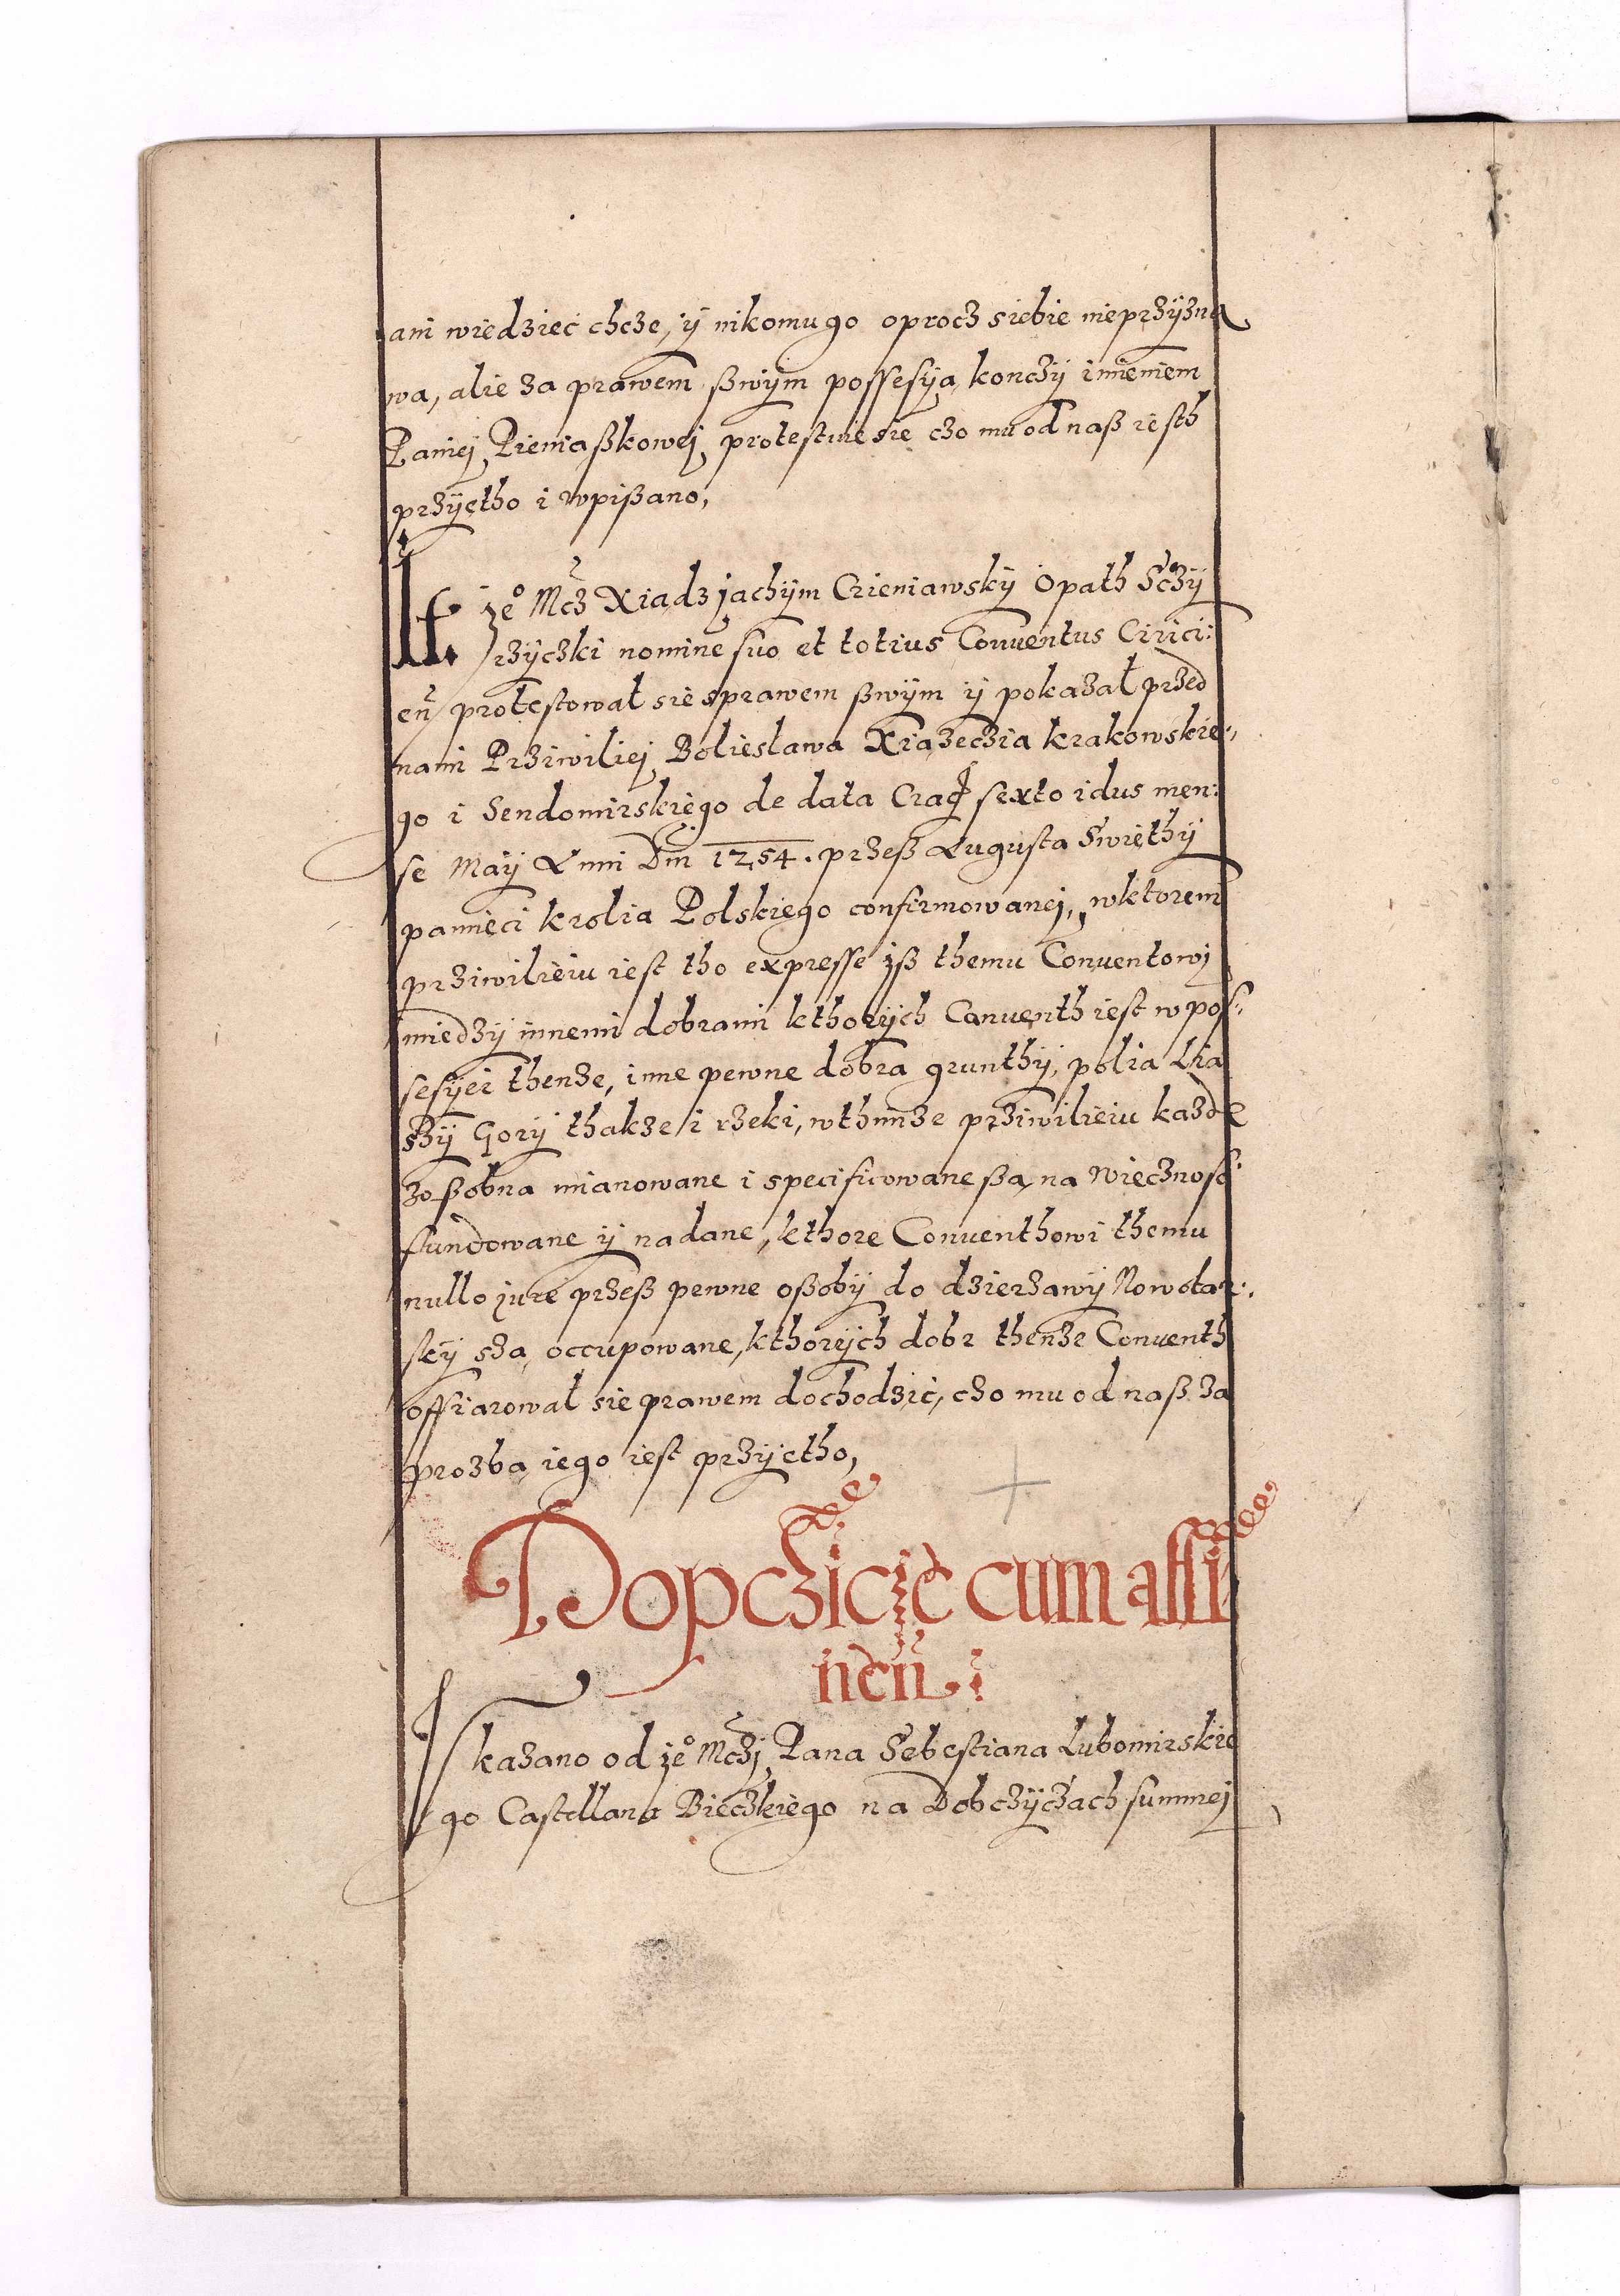 ani wiedzieć chcze, ÿ nikomu go oprocz siebie nieprzÿzna
wa, alie za prawem ßwÿm possesÿą konczÿ imieniem
Paniej Pieniąßkowej protestuie sie czo mu od naß iesth
przÿętho i wpißano,
It Jeº Mcz Xiądz Jachÿm Czieniawskÿ Opath Sczÿ
rzÿczki nomine suo et totius Conventus Cirici:
eñ protestował sie sprawem ßwÿm ÿ pokazał przed
nami Prziwiliej Bolieslawa Xiązeczia Krakowskie,,
go i Sendomirskiego de data Crac sexto idus men:
se Maÿ Anni Dm̃ 1254. przeß Augusta Swięthÿ
pamięci krolia Polskiego confirmowanej, wktorem
prziwilieiu iest tho expresse iß themu Conventowi
miedzÿ innemi dobrami kthorÿch Conventh iest w pos:
sesÿei thenze, inne pewne dobra grunthÿ, polia Lia
szÿ Gorÿ thakze i rzeki, wthimze prziwilieiu kazde
zoßobna mianowane i specificowane ßą na wiecznosć
fundowane ÿ nadane, kthore Conventhowi themu
nullo jure przeß pewne oßobÿ do dzierzawÿ Nowotar:
skÿ szą occupowane, kthorÿch dobr thenze Conventh
offiarował sie prawem dochodzić, czo mu od naß za
prozbą iego iest przÿętho,
Dopczicze cum atti
neñ
Skazano od Jeº Mczj Pana Sebestiana Lubomirskie
go Castellana Bieczkiego na Dobczÿczach summej